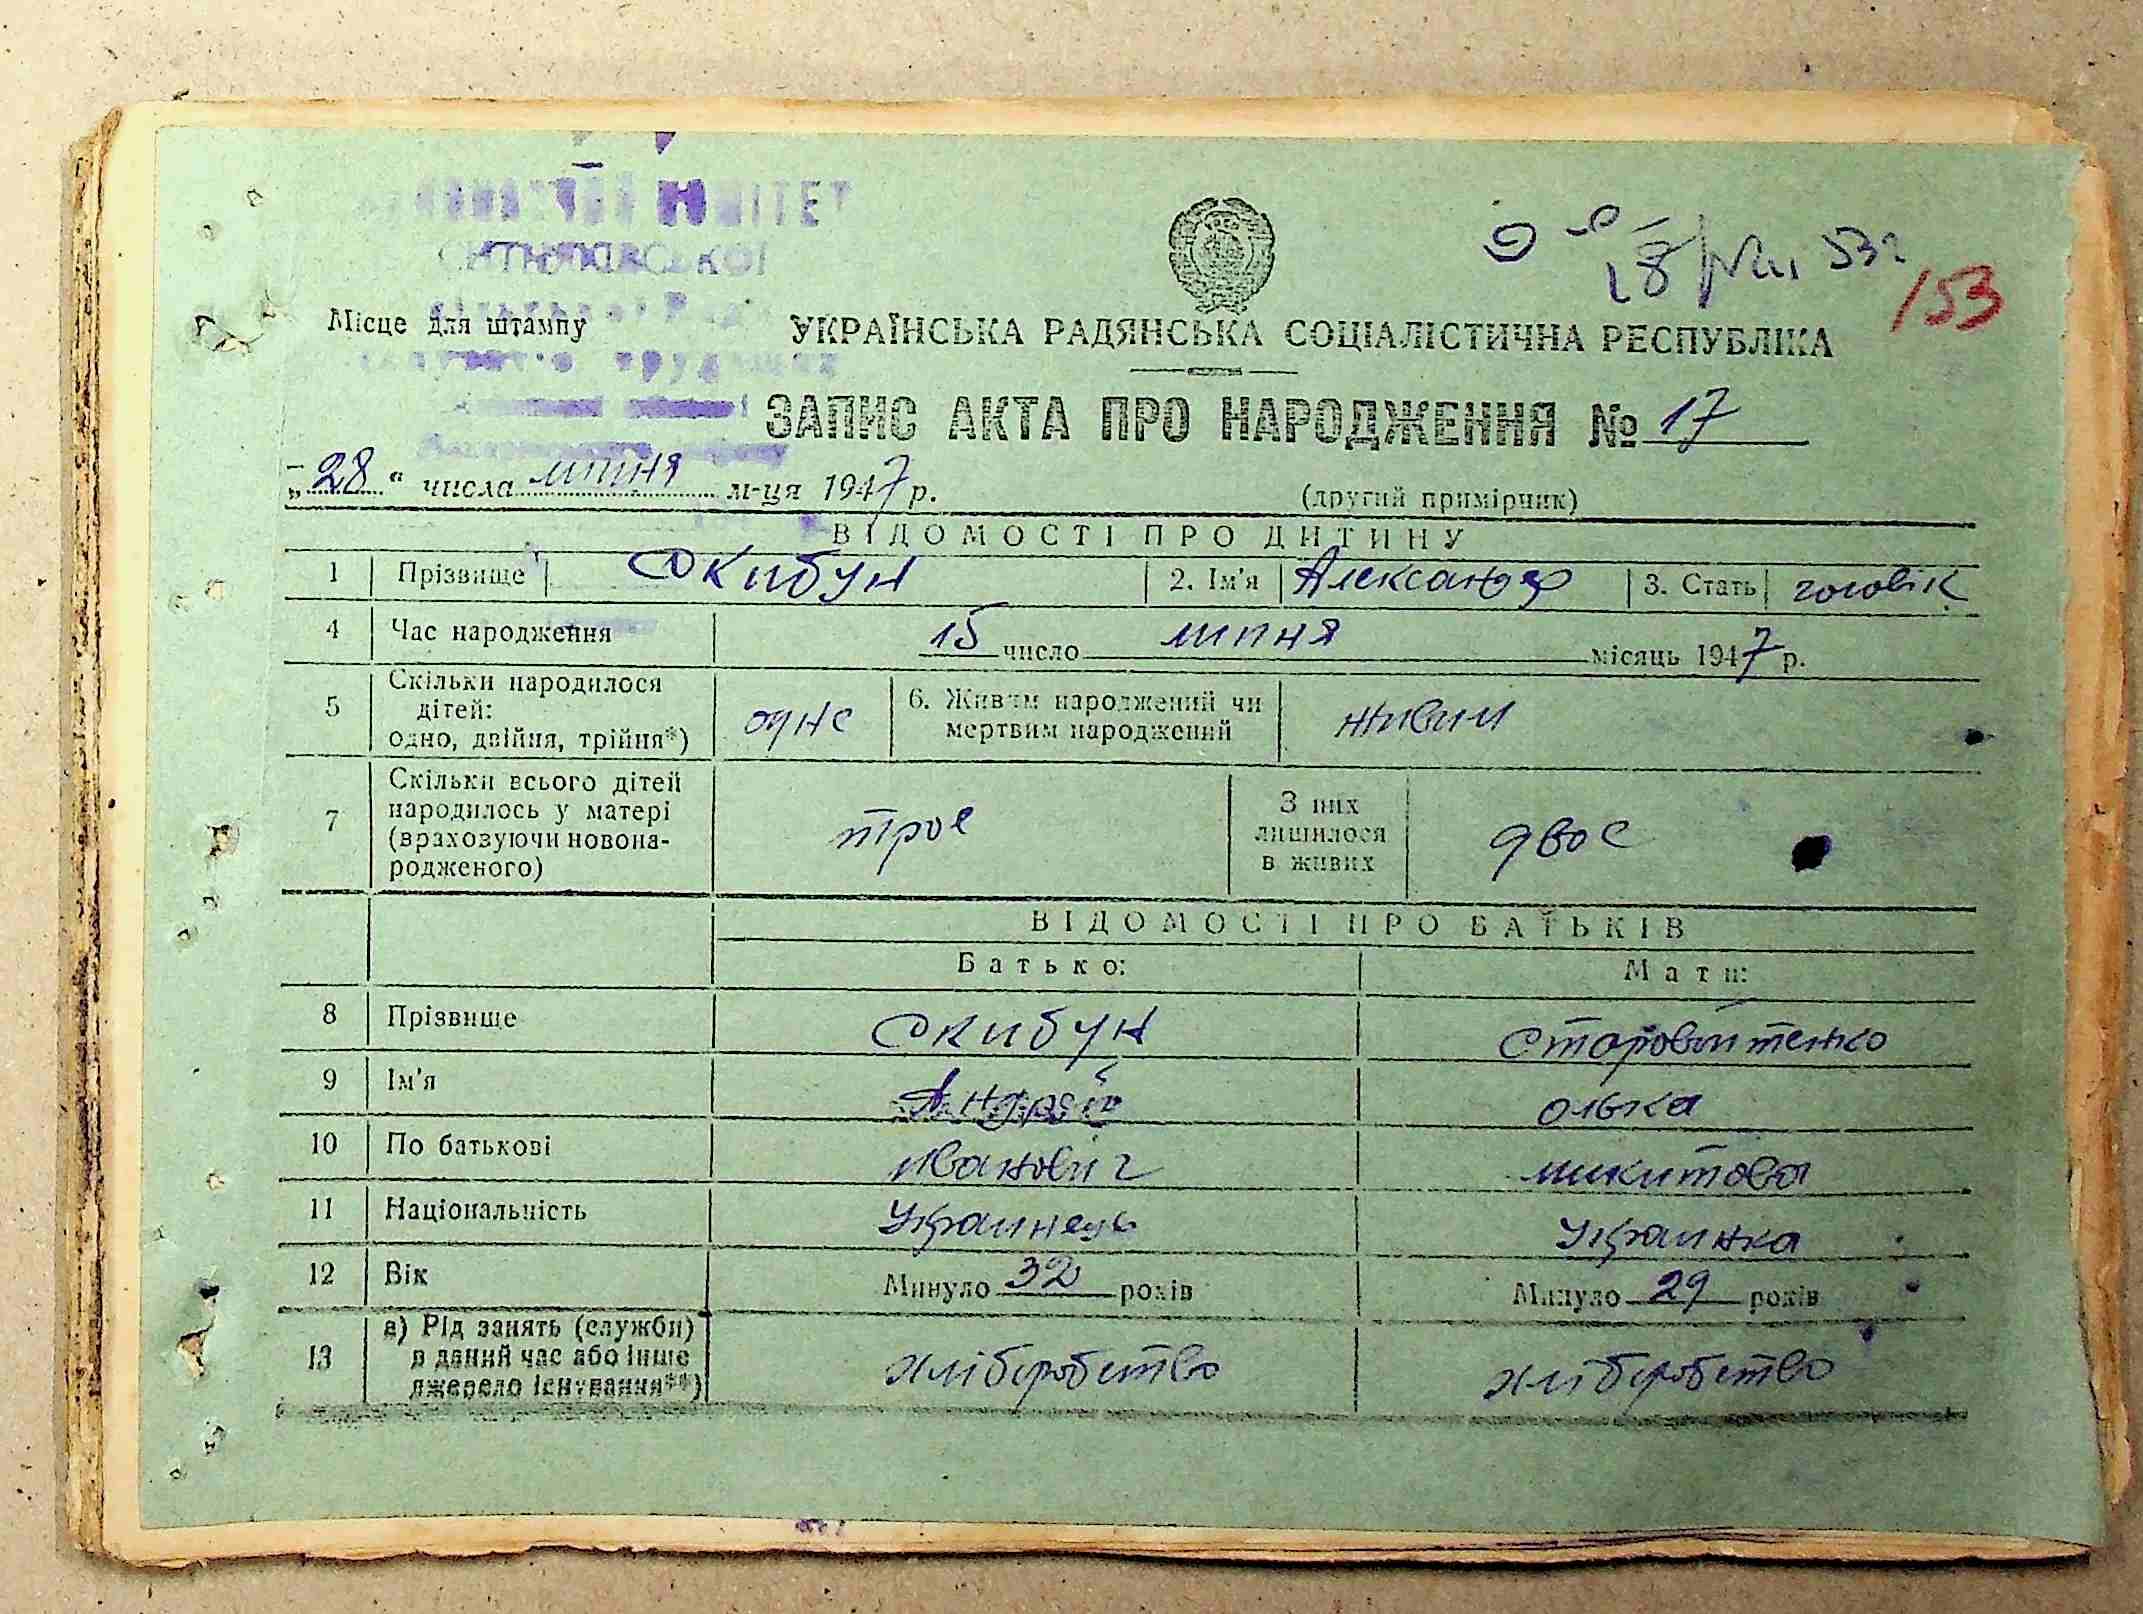 КОМІТЕТ
СИТНЯКІВСЬКОЇ
сільської Ради
депутатів трудящих
18 53 г
153
Місце для штампу
УКРАЇНСЬКА РАДЯНСЬКА СОЦІАЛІСТИЧНА РЕСПУБЛІКА
ЗАПИС АКТА ПРО НАРОДЖЕННЯ № 17
„28“ числа липня м-ця 1947 р.
(другий примірник)
ВІДОМОСТІ ПРО ДИТИНУ
1 Прізвище Скибун 2. Ім'я Александр 3. Стать чоловік
4 Час народження 15 число липня місяць 1947 р.
5 Скільки народилося дітей: одно, двійня, трійня*) одне 6. Живим народжений чи мертвим народжений живим
7 Скільки всього дітей народилось у матері (враховуючи новонародженого) троє З них лишилося в живих двоє
ВІДОМОСТІ ПРО БАТЬКІВ
Батько: Мати:
8 Прізвище Скибун Старовойтенко
9 Ім'я Андрей Олька
10 По батькові Иванович Микитова
11 Національність Украинець Украинка
12 Вік Минуло 32 років Минуло 29 років
13 а) Рід занять (служби) в даний час або інше джерело існування**) хліборобство хліборобство